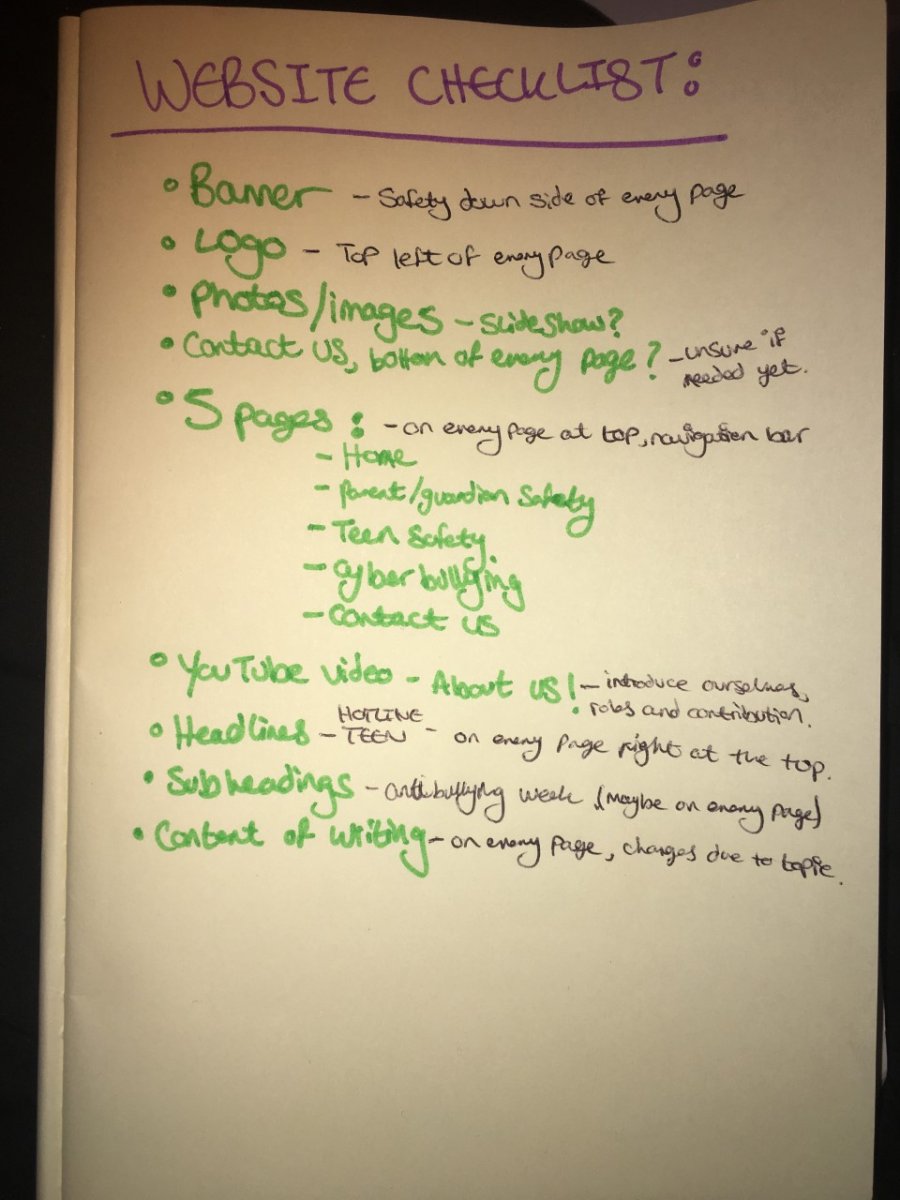 WEBSITE CHECKLIST:
• Banner – Safety down side of every page
• Logo – Top left of every page
• Photos/images – slideshow?
• Contact us, bottom of every page? – unsure if
needed yet.
• 5 pages: – on every page at top, navigation bar
– Home
– parent/guardian Safety
– Teen Safety.
– Cyber bullying
– Contact us
• YouTube video – About us! – introduce ourselves,
roles and contribution.
HOTLINE
• Headlines – TEEN – on every page right at the top.
• Subheadings – antibullying week (maybe on every page)
• Content of writing – on every page, changes due to topic.